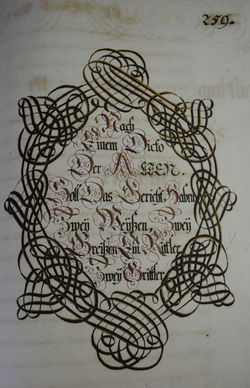 259.
Nach
Einem Dicto
Der Alten.
Soll Das Gericht Haben
Zwey Weyßen, Zwey
Greißen, Ein Ritter
Zwey